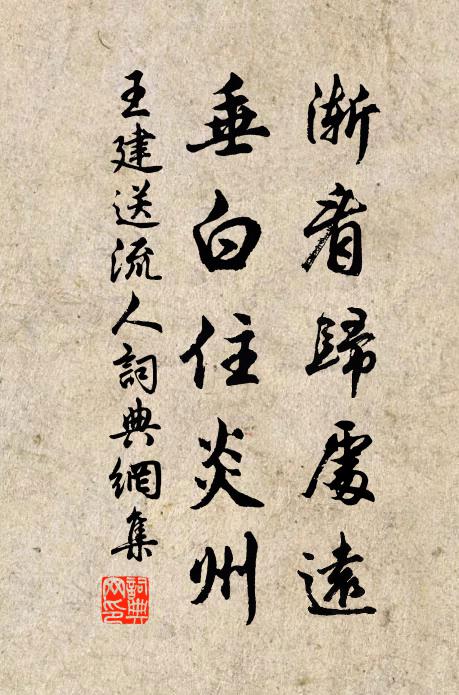 漸看歸處遠
垂白住炎州
王建送流人詞典網集
詞典網印